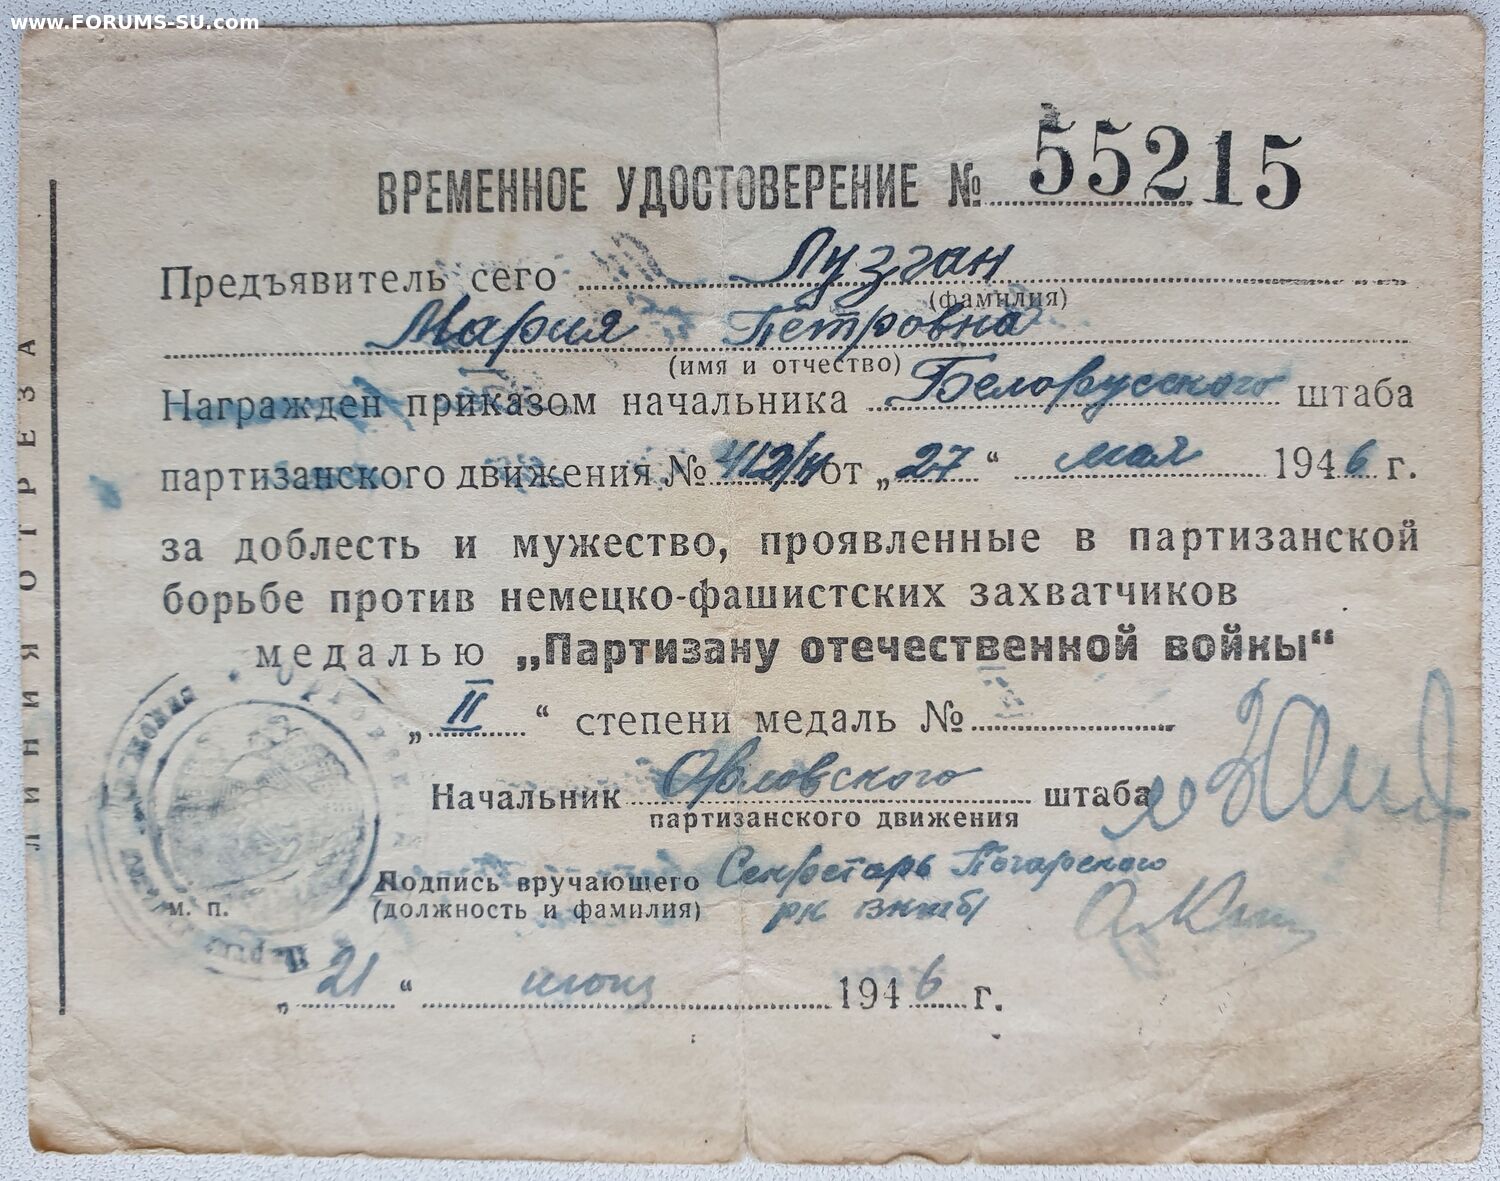 www.FORUMS-SU.com
ВРЕМЕННОЕ УДОСТОВЕРЕНИЕ № 55215
Предъявитель сего Лузган
(фамилия)
Мария Петровна
(имя и отчество)
Награжден приказом начальника Белорусского штаба
партизанского движения № 412/н от „27“ мая 1946 г.
за доблесть и мужество, проявленные в партизанской
борьбе против немецко-фашистских захватчиков
медалью „Партизану отечественной войны“
„II“ степени медаль №
Начальник Орловского штаба
партизанского движения
Подпись вручающего Секретарь Погарского
(должность и фамилия) рк вкпб/
м. п.
„21“ 1946 г.
ЛИНИЯ ОТРЕЗА